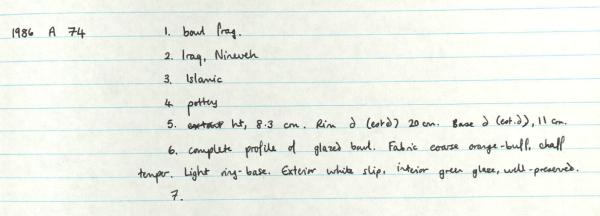 1986 A 74 1. bowl frag.
2. Iraq, Nineveh
3. Islamic
4. pottery
5. extant ht, 8.3 cm. Rim d (est d) 20 cm. Base d (est. d), 11 cm.
6. complete profile of glazed bowl. Fabric coarse orange-buff, chaff
temper. Light ring-base. Exterior white slip, interior green glaze, well-preserved.
7.